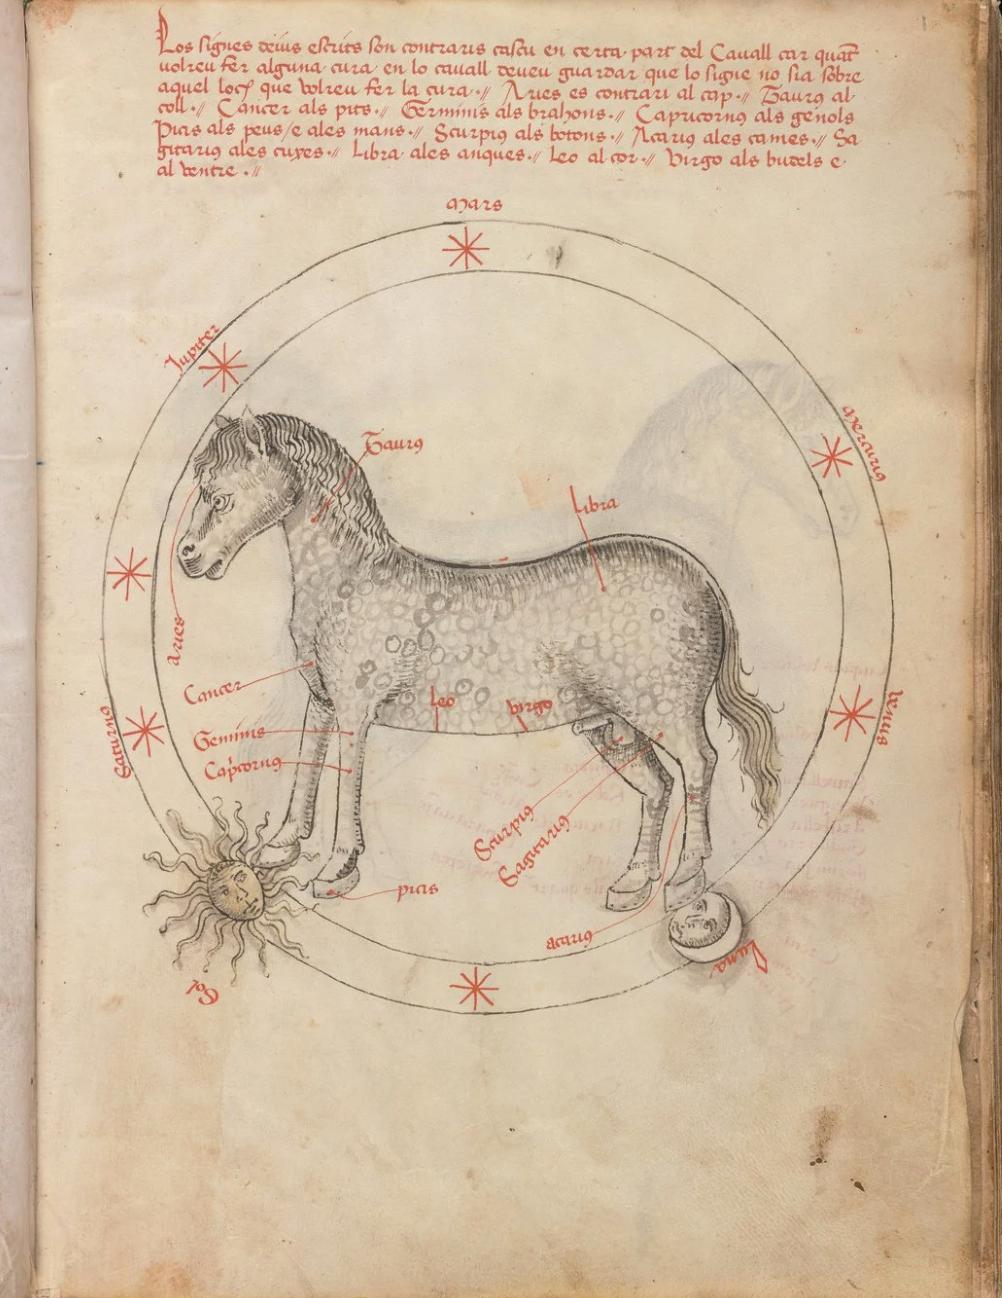 Los signes deius escrits son contraris cascu en certa part del Cauall car quãt
volreu fer alguna cura en lo cauall deueu guardar que lo signe no sia sobre
aquel loch que volreu fer la cura // Aries es contrari al cap // Taurꝰ al
coll // Cancer als pits // Geminis als brahons // Capricornꝰ als genols
Picis als peus / e ales mans // Scurpiꝰ als botons // Acariꝰ ales cames // Sa
gitariꝰ ales cuxes // Libra ales anques // Leo al cor // Virgo als budels e
al ventre //
Mars
Jupiter
Mercuriꝰ
Taurꝰ
Libra
aries
Cancer
Leo
Virgo
Saturnꝰ
Geminis
Venus
Cap̃cornꝰ
Scurpiꝰ
Sagitariꝰ
picis
acariꝰ
Luna
Sol